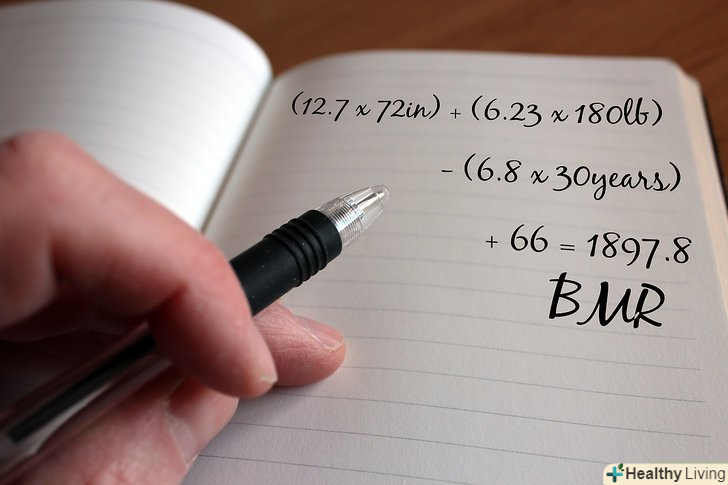 (12.7 x 72in) + (6.23 x 180lb)
- (6.8 x 30years)
+ 66 = 1897.8
BMR
Healthy Living